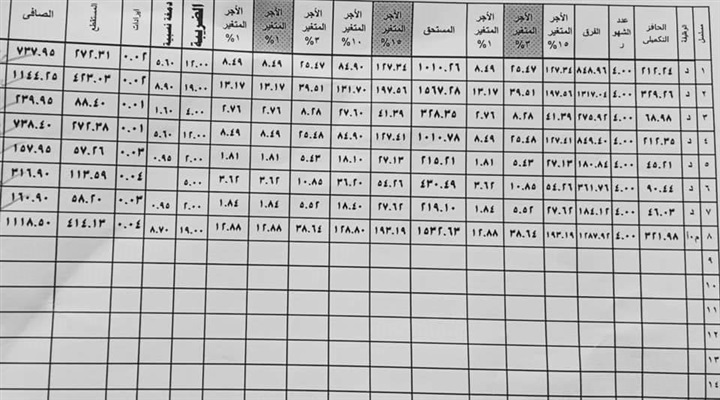 مسلسل الوظيفة الحافز التكميلى عدد الشهور الفرق الأجر المتغير ١٥% الأجر المتغير ٣% الأجر المتغير ١% المستحق الأجر المتغير ١٥% الأجر المتغير ١٠% الأجر المتغير ٣% الأجر المتغير ١% الأجر المتغير ١% الضريبة دمغة نسبية ايرادات المستقطع الصافى
١ د ٢١٢.٢٤ ٤.٠٠ ٨٤٨.٩٦ ١٢٧.٣٤ ٢٥.٤٧ ٨.٤٩ ١٠١٠.٢٦ ١٢٧.٣٤ ٨٤.٩٠ ٢٥.٤٧ ٨.٤٩ ٨.٤٩ ١٢.٠٠ ٥.٦٠ ٠.٠٢ ٢٧٢.٣١ ٧٣٧.٩٥
٢ د ٣٢٩.٢٦ ٤.٠٠ ١٣١٧.٠٤ ١٩٧.٥٦ ٣٩.٥١ ١٣.١٧ ١٥٦٧.٢٨ ١٩٧.٥٦ ١٣١.٧٠ ٣٩.٥١ ١٣.١٧ ١٣.١٧ ١٩.٠٠ ٨.٩٠ ٠.٠٢ ٤٢٣.٠٣ ١١٤٤.٢٥
٣ د ٦٨.٩٨ ٤.٠٠ ٢٧٥.٩٢ ٤١.٣٩ ٨.٢٨ ٢.٧٦ ٣٢٨.٣٥ ٤١.٣٩ ٢٧.٦٠ ٨.٢٨ ٢.٧٦ ٢.٧٦ ٤.٠٠ ١.٦٠ ٠.٠١ ٨٨.٤٠ ٢٣٩.٩٥
٤ د ٢١٢.٣٥ ٤.٠٠ ٨٤٩.٤٠ ١٢٧.٤١ ٢٥.٤٨ ٨.٤٩ ١٠١٠.٧٨ ١٢٧.٤١ ٨٤.٩٠ ٢٥.٤٨ ٨.٤٩ ٨.٤٩ ١٢.٠٠ ٥.٦٠ ٠.٠١ ٢٧٢.٣٨ ٧٣٨.٤٠
٥ د ٤٥.٢١ ٤.٠٠ ١٨٠.٨٤ ٢٧.١٣ ٥.٤٣ ١.٨١ ٢١٥.٢١ ٢٧.١٣ ١٨.١٠ ٥.٤٣ ١.٨١ ١.٨١ ٢.٠٠ ٠.٩٥ ٠.٠٣ ٥٧.٢٦ ١٥٧.٩٥
٦ د ٩٠.٤٤ ٤.٠٠ ٣٦١.٧٦ ٥٤.٢٦ ١٠.٨٥ ٣.٦٢ ٤٣٠.٤٩ ٥٤.٢٦ ٣٦.٢٠ ١٠.٨٥ ٣.٦٢ ٣.٦٢ ٥.٠٠ ٠.٠٤ ١١٣.٥٩ ٣١٦.٩٠
٧ د ٤٦.٠٣ ٤.٠٠ ١٨٤.١٢ ٢٧.٦٢ ٥.٥٢ ١.٨٤ ٢١٩.١٠ ٢٧.٦٢ ١٨.٤٠ ٥.٥٢ ١.٨٤ ١.٨٤ ٢.٠٠ ٠.٩٥ ٠.٠٣ ٥٨.٢٠ ١٦٠.٩٠
٨ م.ا ٣٢١.٩٨ ٤.٠٠ ١٢٨٧.٩٢ ١٩٣.١٩ ٣٨.٦٤ ١٢.٨٨ ١٥٣٢.٦٣ ١٩٣.١٩ ١٢٨.٨٠ ٣٨.٦٤ ١٢.٨٨ ١٢.٨٨ ١٩.٠٠ ٨.٧٠ ٠.٠٤ ٤١٤.١٣ ١١١٨.٥٠
٩
١٠
١١
١٢
١٣
١٤